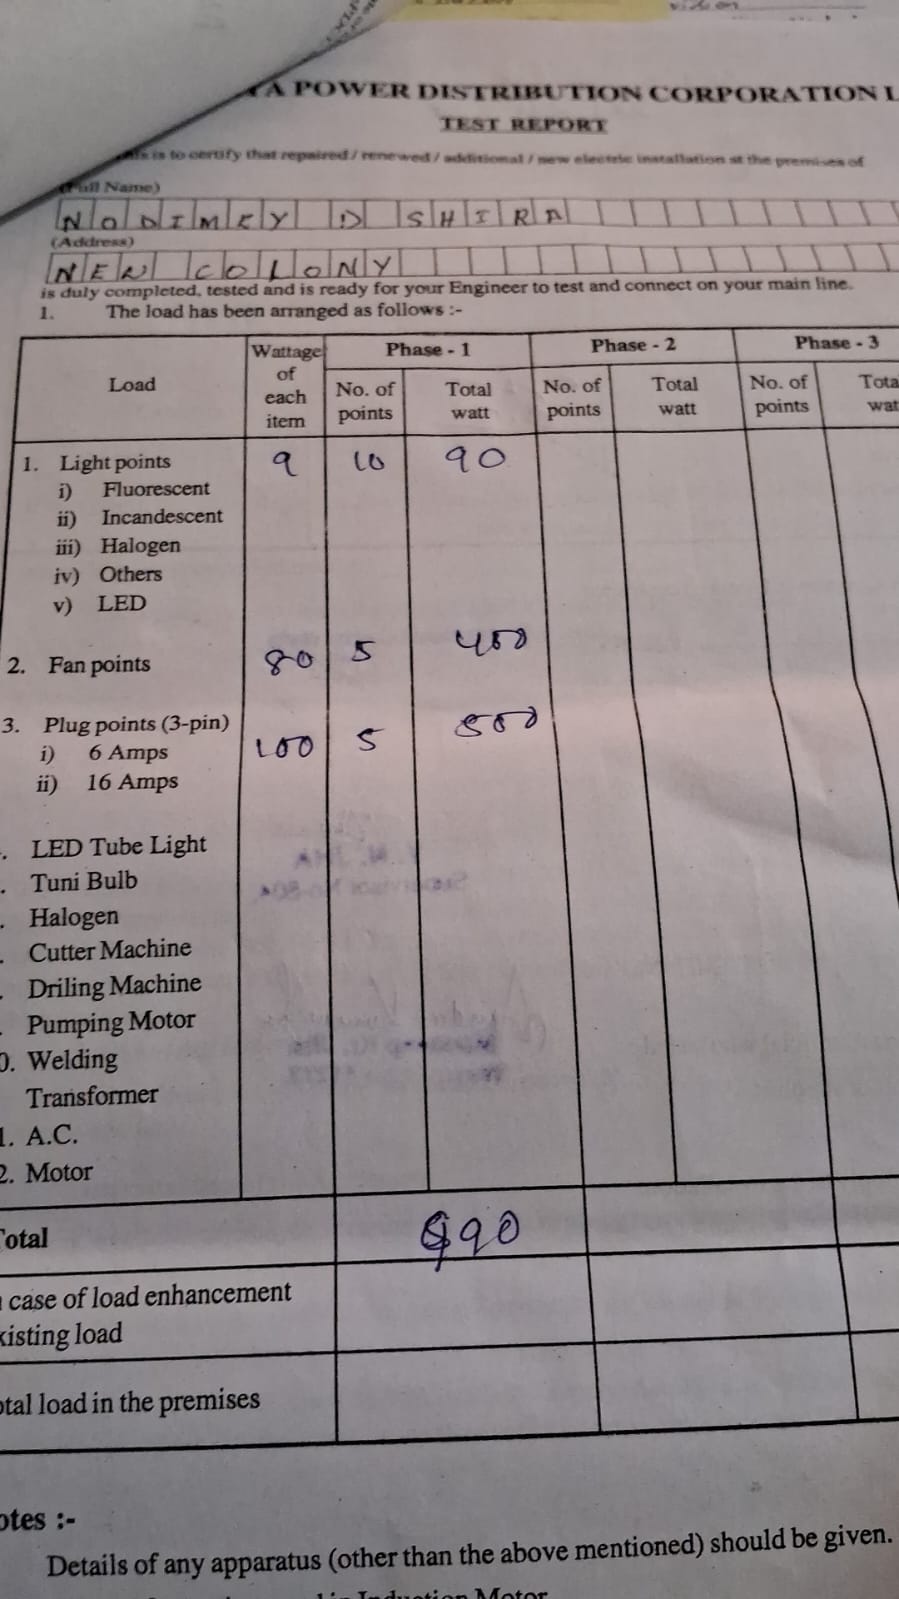 A POWER DISTRIBUTION CORPORATION L
TEST REPORT
is to certify that repaired / renewed / additional / new electric installation at the premises of
(Full Name)
NODIMEY D SHIRA
(Address)
NEW COLONY
is duly completed, tested and is ready for your Engineer to test and connect on your main line.
1. The load has been arranged as follows :-
Load Wattage of each item Phase - 1 Phase - 2 Phase - 3
No. of points Total watt No. of points Total watt No. of points Tota wat
1. Light points 9 10 90
i) Fluorescent
ii) Incandescent
iii) Halogen
iv) Others
v) LED
2. Fan points 80 5 400
3. Plug points (3-pin) 500
i) 6 Amps 100 5
ii) 16 Amps
. LED Tube Light
. Tuni Bulb
. Halogen
. Cutter Machine
. Driling Machine
. Pumping Motor
0. Welding
Transformer
1. A.C.
2. Motor
Total 990
case of load enhancement
xisting load
otal load in the premises
otes :-
Details of any apparatus (other than the above mentioned) should be given.
Induction Motor